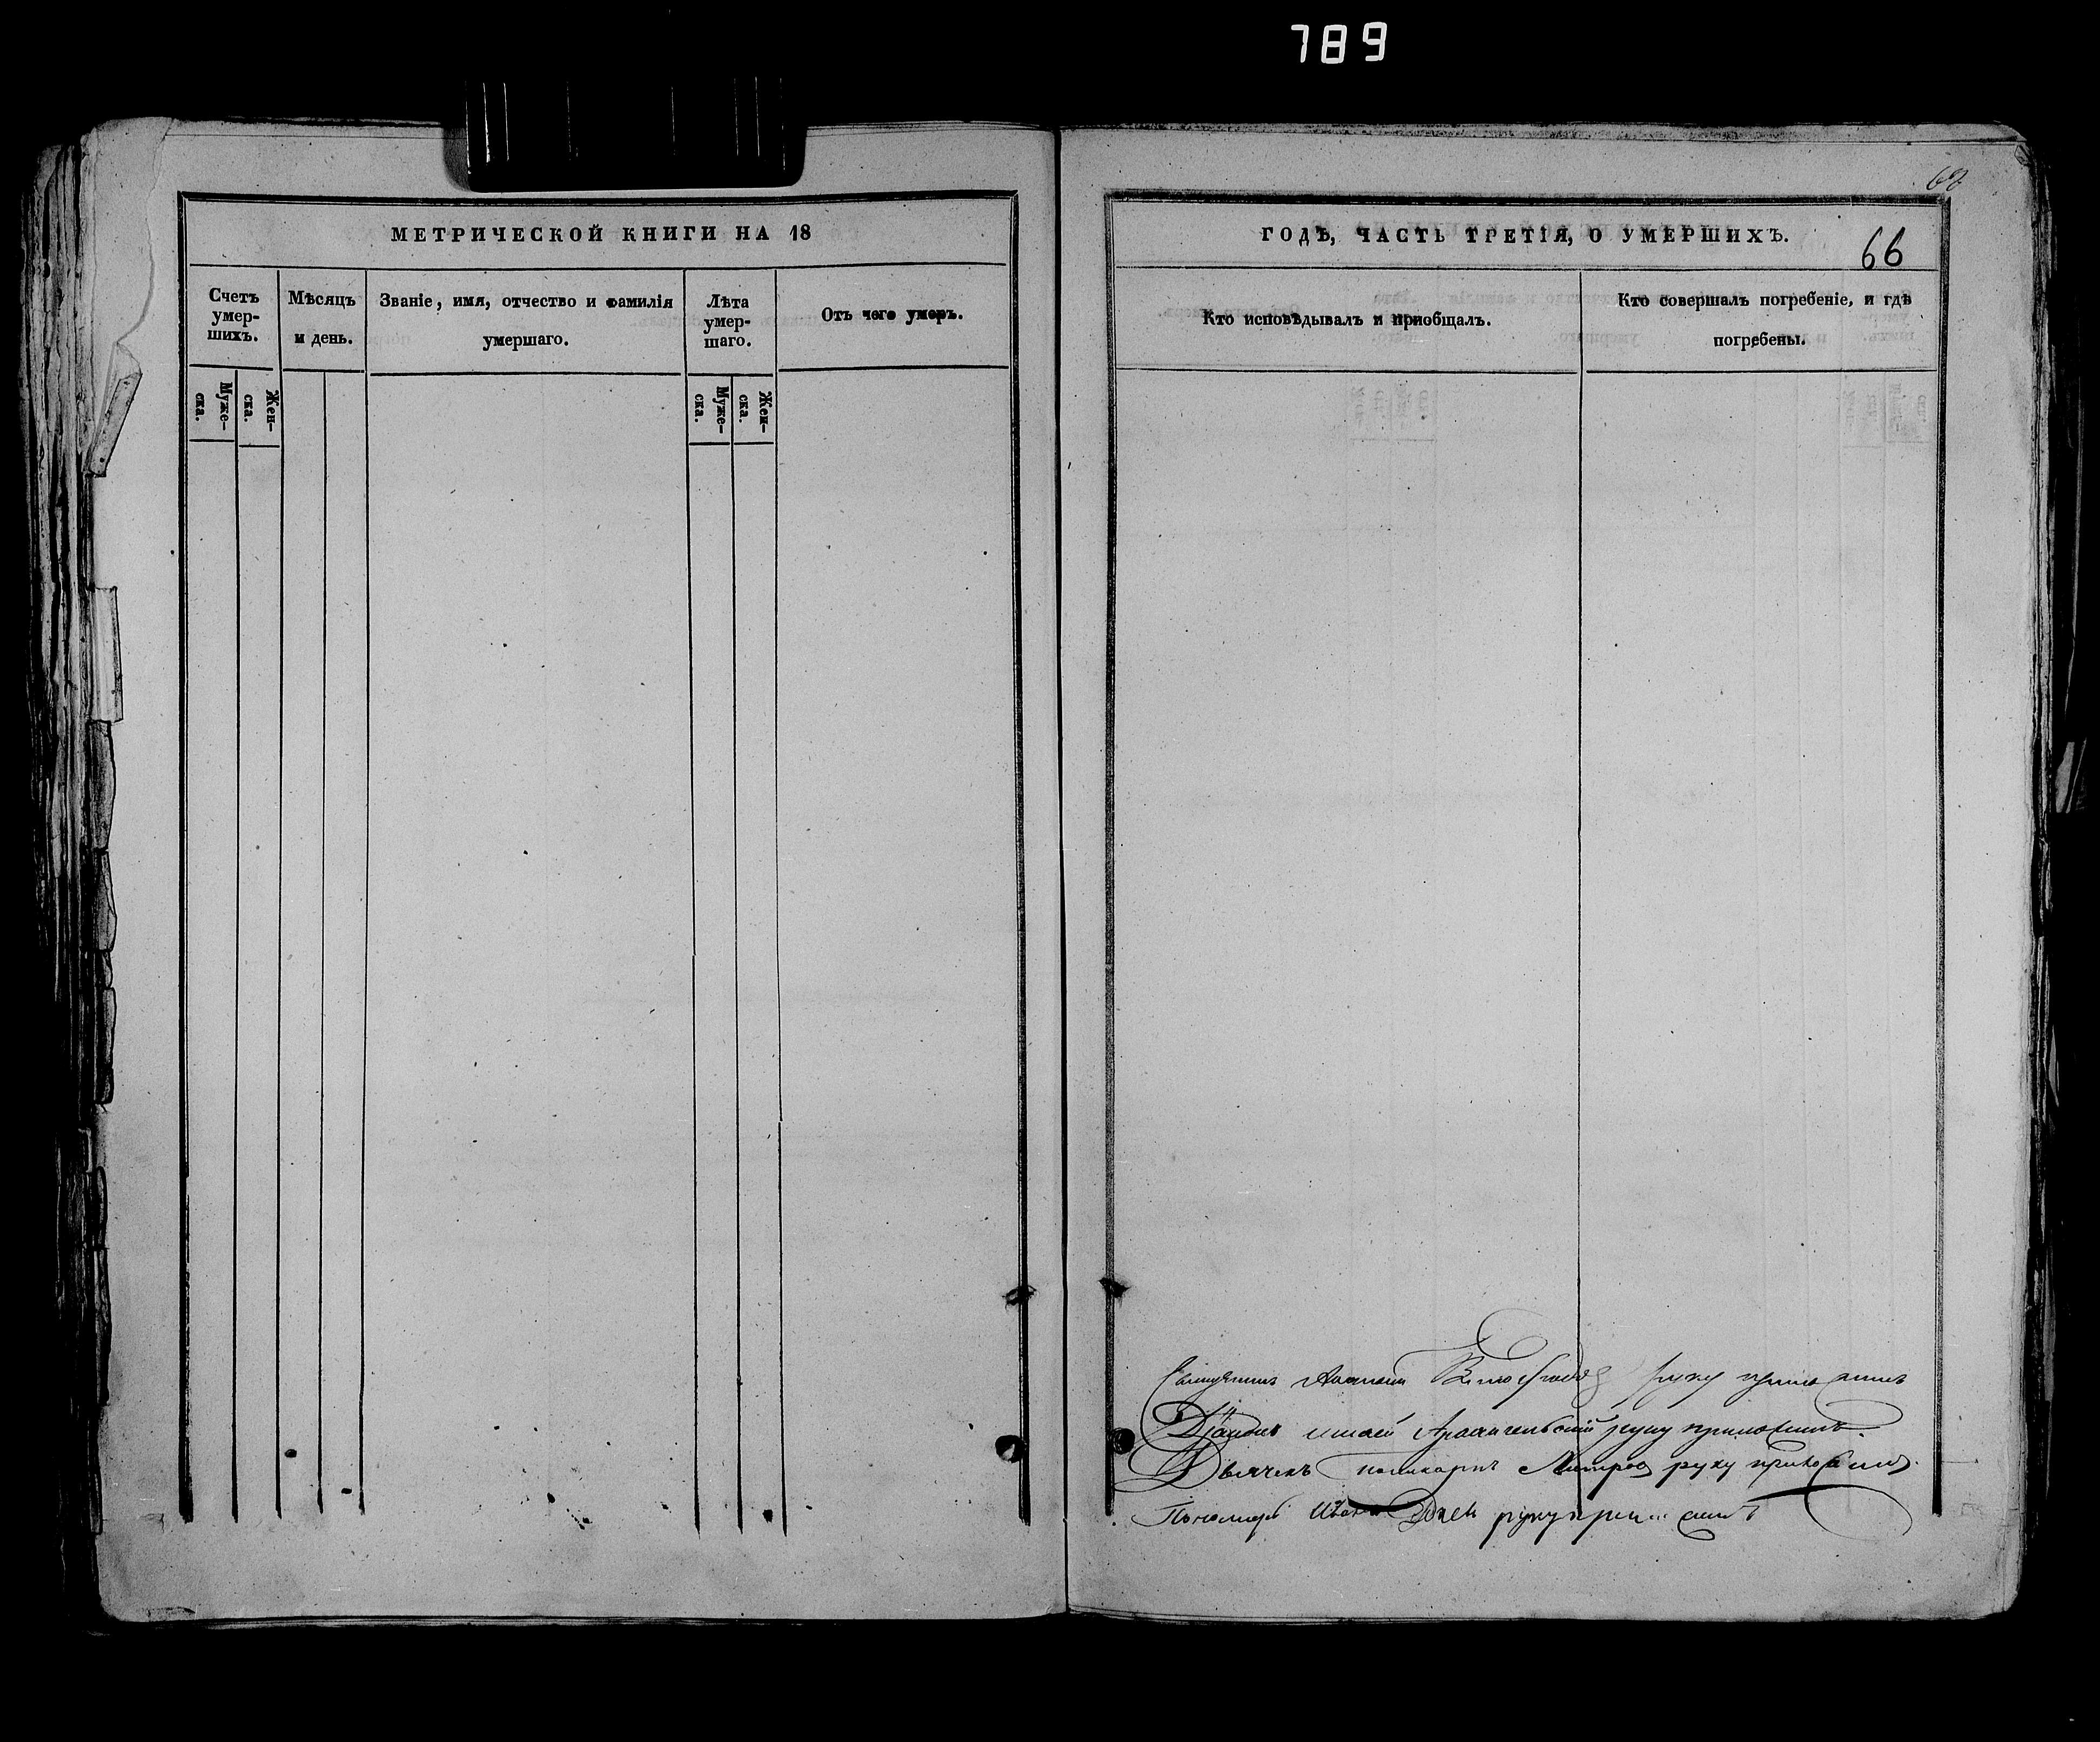 789
МЕТРИЧЕСКОЙ КНИГИ НА 18
Счетъ умер-шихъ.
Мѣсяцъ и день.
Званіе, имя, отчество и фамилія умершаго.
Лѣта умер-шаго.
Отъ чего умеръ.
Муже-ска.
Жен-ска.
Муже-ска.
Жен-ска.
ГОДЪ, ЧАСТЬ ТРЕТІЯ, О УМЕРШИХЪ.
66
Кто исповѣдывалъ и пріобщалъ.
Кто совершалъ погребеніе, и гдѣ погребены.
Священникъ руку приложилъ
Діаконъ Архангельскій руку приложилъ.
Дьячекъ Поликарпъ руку приложилъ.
Пономарь Иванъ руку приложилъ